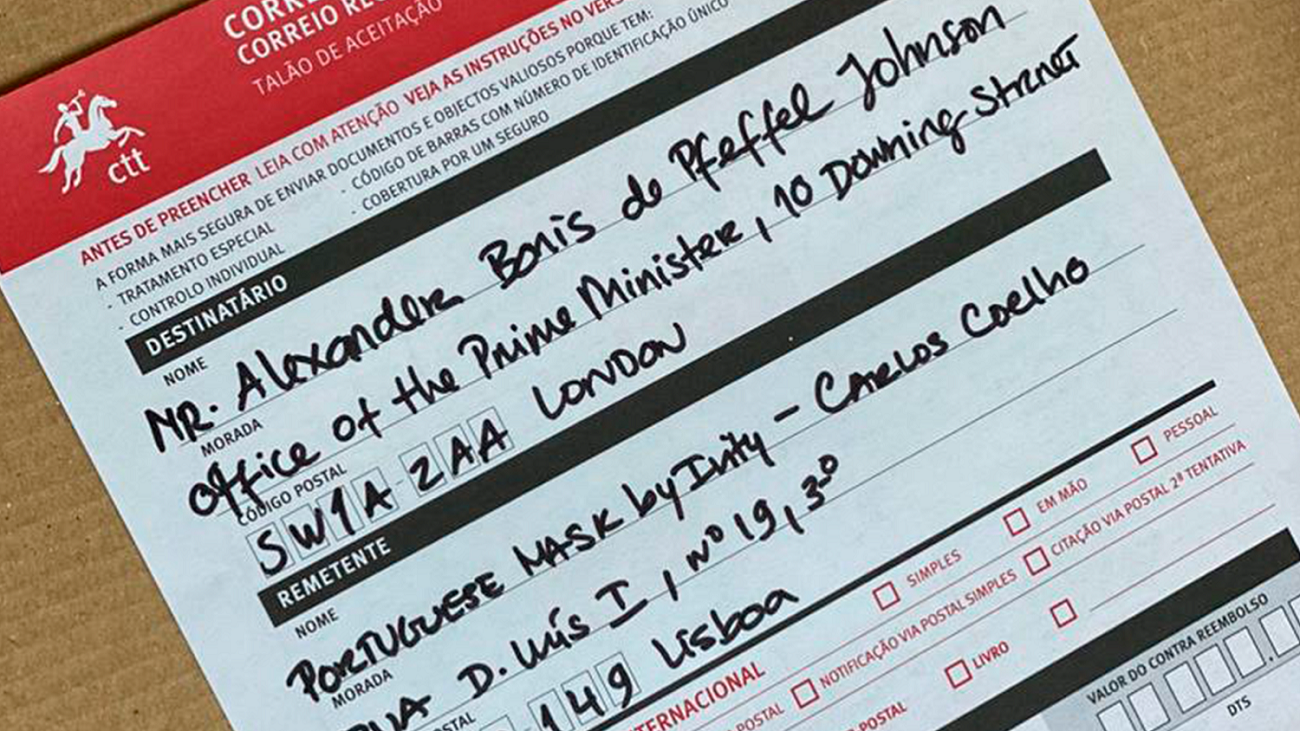 CORREIO
TALÃO DE ACEITAÇÃO
ctt
ANTES DE PREENCHER LEIA COM ATENÇÃO VEJA AS INSTRUÇÕES NO
A FORMA MAIS SEGURA DE ENVIAR DOCUMENTOS E OBJECTOS VALIOSOS PORQUE TEM:
- TRATAMENTO ESPECIAL
- CÓDIGO DE BARRAS COM NÚMERO DE IDENTIFICAÇÃO ÚNICO
- CONTROLO INDIVIDUAL
- COBERTURA POR UM SEGURO
DESTINATÁRIO
NOME
MR. Alexander Boris de Pfeffel Johnson
MORADA
Office of the Prime Minister, 10 Downing Street
CÓDIGO POSTAL
SW1A-2AA LONDON
REMETENTE
NOME
PORTUGUESE MASK by Ivity - CARLOS Coelho
MORADA
RUA D. Luís I, nº 19, 3º
POSTAL
149 Lisboa
SIMPLES
EM MÃO
PESSOAL
NOTIFICAÇÃO VIA POSTAL SIMPLES
CITAÇÃO VIA POSTAL 2ª TENTATIVA
POSTAL
LIVRO
POSTAL
VALOR DO CONTRA REEMBOLSO
DTS